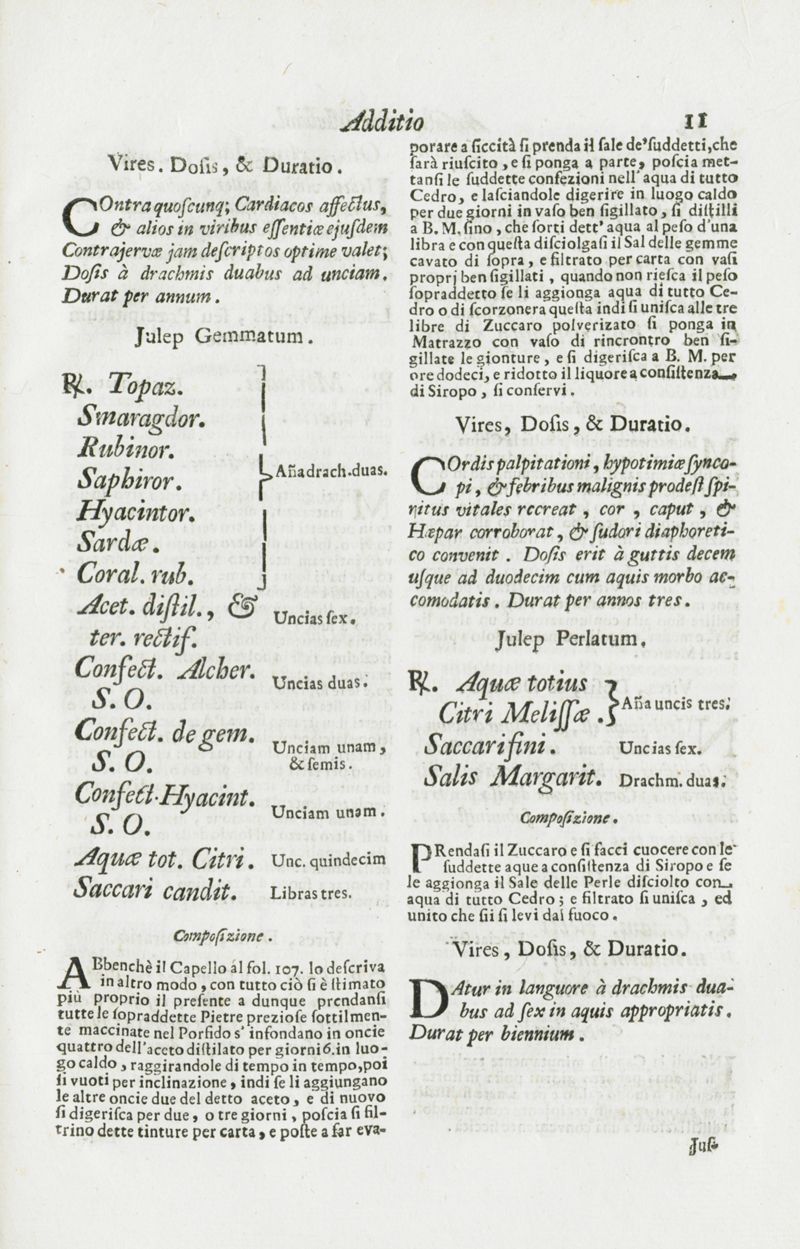 Additio 11
Vires. Dosis, & Duratio.
COntra quoſcunq; Cardiacos affectus,
& alios in viribus eſſentiæ ejuſdem
Contrajervæ jam deſcriptos optime valet;
Doſis à drachmis duabus ad unciam.
Durat per annum.
Julep Gemmatum.
℞. Topaz.
Smaragdor.
Rubinor.
Saphiror. Añadrach.duas.
Hyacintor.
Sardæ.
Coral. rub.
Acet. diſtil., &
ter. rectif. Uncias ſex.
Confect. Alcher.
S. O. Uncias duas.
Confect. de gem.
S. O. Unciam unam,
& ſemis.
Confect. Hyacint.
S. O. Unciam unam.
Aquæ tot. Citri. Unc. quindecim
Saccari candit. Libras tres.
Compoſizione.
ABbenchè il Capello al fol. 107. lo deſcriva
in altro modo, con tutto ciò ſi è ſtimato
più proprio il preſente a dunque prendanſi
tutte le ſopraddette Pietre prezioſe ſottilmen-
te maccinate nel Porfido s' infondano in oncie
quattro dell'aceto diſtilato per giorni 6. in luo-
go caldo, raggirandole di tempo in tempo, poi
ſi vuoti per inclinazione, indi ſe li aggiungano
le altre oncie due del detto aceto, e di nuovo
ſi digeriſca per due, o tre giorni, poſcia ſi fil-
trino dette tinture per carta, e poſte a far eva-
porare a ſiccità ſi prenda il ſale de'ſuddetti, che
ſarà riuſcito, e ſi ponga a parte, poſcia met-
tanſi le ſuddette confezioni nell' aqua di tutto
Cedro, e laſciandole digerire in luogo caldo
per due giorni in vaſo ben ſigillato, ſi diſtilli
a B. M. ſino, che ſorti dett' aqua al peſo d'una
libra e con queſta diſciolgaſi il Sal delle gemme
cavato di ſopra, e filtrato per carta con vaſi
proprj ben ſigillati, quando non rieſca il peſo
ſopraddetto ſe li aggionga aqua di tutto Ce-
dro o di ſcorzonera queſta indi ſi uniſca alle tre
libre di Zuccaro polverizato ſi ponga in
Matrazzo con vaſo di rincrontro ben ſi-
gillate le gionture, e ſi digeriſca a B. M. per
ore dodeci, e ridotto il liquore a conſiſtenza
di Siropo, ſi conſervi.
Vires, Doſis, & Duratio.
COrdis palpitationi, hypotimiæ ſynco-
pi, & febribus malignis prodeſt ſpi-
ritus vitales recreat, cor, caput, &
Hæpar corroborat, & ſudori diaphoreti-
co convenit. Doſis erit à guttis decem
uſque ad duodecim cum aquis morbo ac-
comodatis. Durat per annos tres.
Julep Perlatum.
℞. Aquæ totius
Citri Meliſſæ. Aña uncis tres.
Saccari fini. Uncias ſex.
Salis Margarit. Drachm. duas.
Compoſizione.
PRendaſi il Zuccaro e ſi facci cuocere con le
ſuddette aque a conſiſtenza di Siropo e ſe
le aggionga il Sale delle Perle diſciolto con
aqua di tutto Cedro; e filtrato ſi uniſca, ed
unito che ſii ſi levi dal fuoco.
Vires, Doſis, & Duratio.
DAtur in languore à drachmis dua-
bus ad ſex in aquis appropriatis.
Durat per biennium.
Juſ-